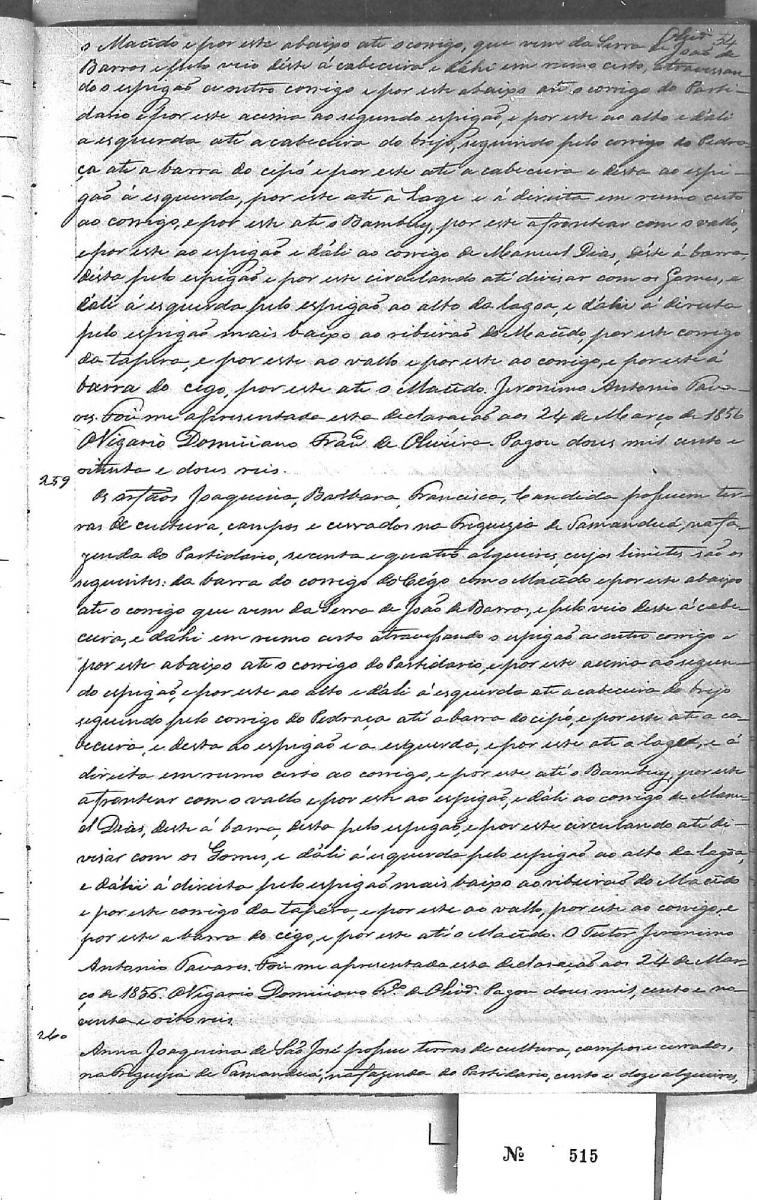 54
o Macêdo e por este abaixo até o corrigo, que vem da Serra de João de
Barros e pelo veio dêste á cabeceira e dáhi em rumo certo, atravessan
do o espigão a outro corrigo e por este abaixo até o corrigo do Parti-
dario e por este acima ao segundo espigão, e por este ao alto e dáli
a esquerda até a cabeceira do brejo, seguindo pelo corrigo do Pedra-
ça até a barra do cipó e por este até a cabeceira e desta ao espi-
gão á esquerda, por este até a Lage e á direita em rumo certo
ao corrigo, e por este até o Bambuy, por este a frontear com o vallo,
e por este ao espigão e dáli ao corrigo de Manuel Dias, dêste á barra,
désta pelo espigão e por este circulando até divisar com os Gomes, e
dáli á esquerda pelo espigão ao alto da lagoa, e dáhi á direita
pelo espigão mais baixo ao ribeirão do Macêdo, por este corrigo
da tapera, e por este ao vallo e por este ao corrigo, e por este á
barra do cégo, por este até o Macêdo. Jeronimo Antonio Tava-
res. Foi me apresentada esta declaração aos 24 de Março de 1856
O Vigario Domiciano Franco de Oliveira. Pagou dous mil cento e
oitenta e dous reis.
259
Os orfãos Joaquina, Barbara, Francisca, e Candida possuem ter-
ras de cultura, campos e cerrados na Freguezia de Tamanduá, na fa-
zenda do Partidario, secenta e quatro alqueires, cujos limites são os
seguintes: da barra do corrigo do Cégo com o Macêdo e por este abaixo
até o corrigo que vem da Serra de João de Barros, e pelo veio deste á cabe-
ceira, e dáhi em rumo certo atravessando o espigão a outro corrigo e
por este abaixo até o corrigo do Partidario, e por este acima ao segun-
do espigão, e por este ao alto e dáli á esquerda até a cabeceira do brejo
seguindo pelo corrigo do Pedraça até a barra do cipó, e por este até a ca-
beceira, e desta ao espigão e a esquerda, e por este até a lage, e á
direita em rumo certo ao corrigo, e por este até o Bambuy, por este
a frontear com o vallo e por este ao espigão, e dáli ao corrigo de Manu-
el Dias, deste á barra, desta pelo espigão, e por este circulando até di-
visar com os Gomes, e dáli á esquerda pelo espigão ao alto da lagôa,
e dáhi á direita pelo espigão mais baixo ao ribeirão do Macêdo
e por este corrigo da tapera, e por este ao vallo, por este ao corrigo, e
por este a barra do cégo, e por este até o Macêdo. O Tutor Jeronimo
Antonio Tavares. Foi me apresentada esta declaração aos 24 de Mar-
ço de 1856. O Vigario Domiciano Fr.co de Olivr.a Pagou dous mil, cento e no-
venta e oito reis.
260
Anna Joaquina de São José possue terras de cultura, campos e cerrados,
na Freguesia de Tamanduá, na fazenda do Partidario, cento e doze alqueires,
Nº 515